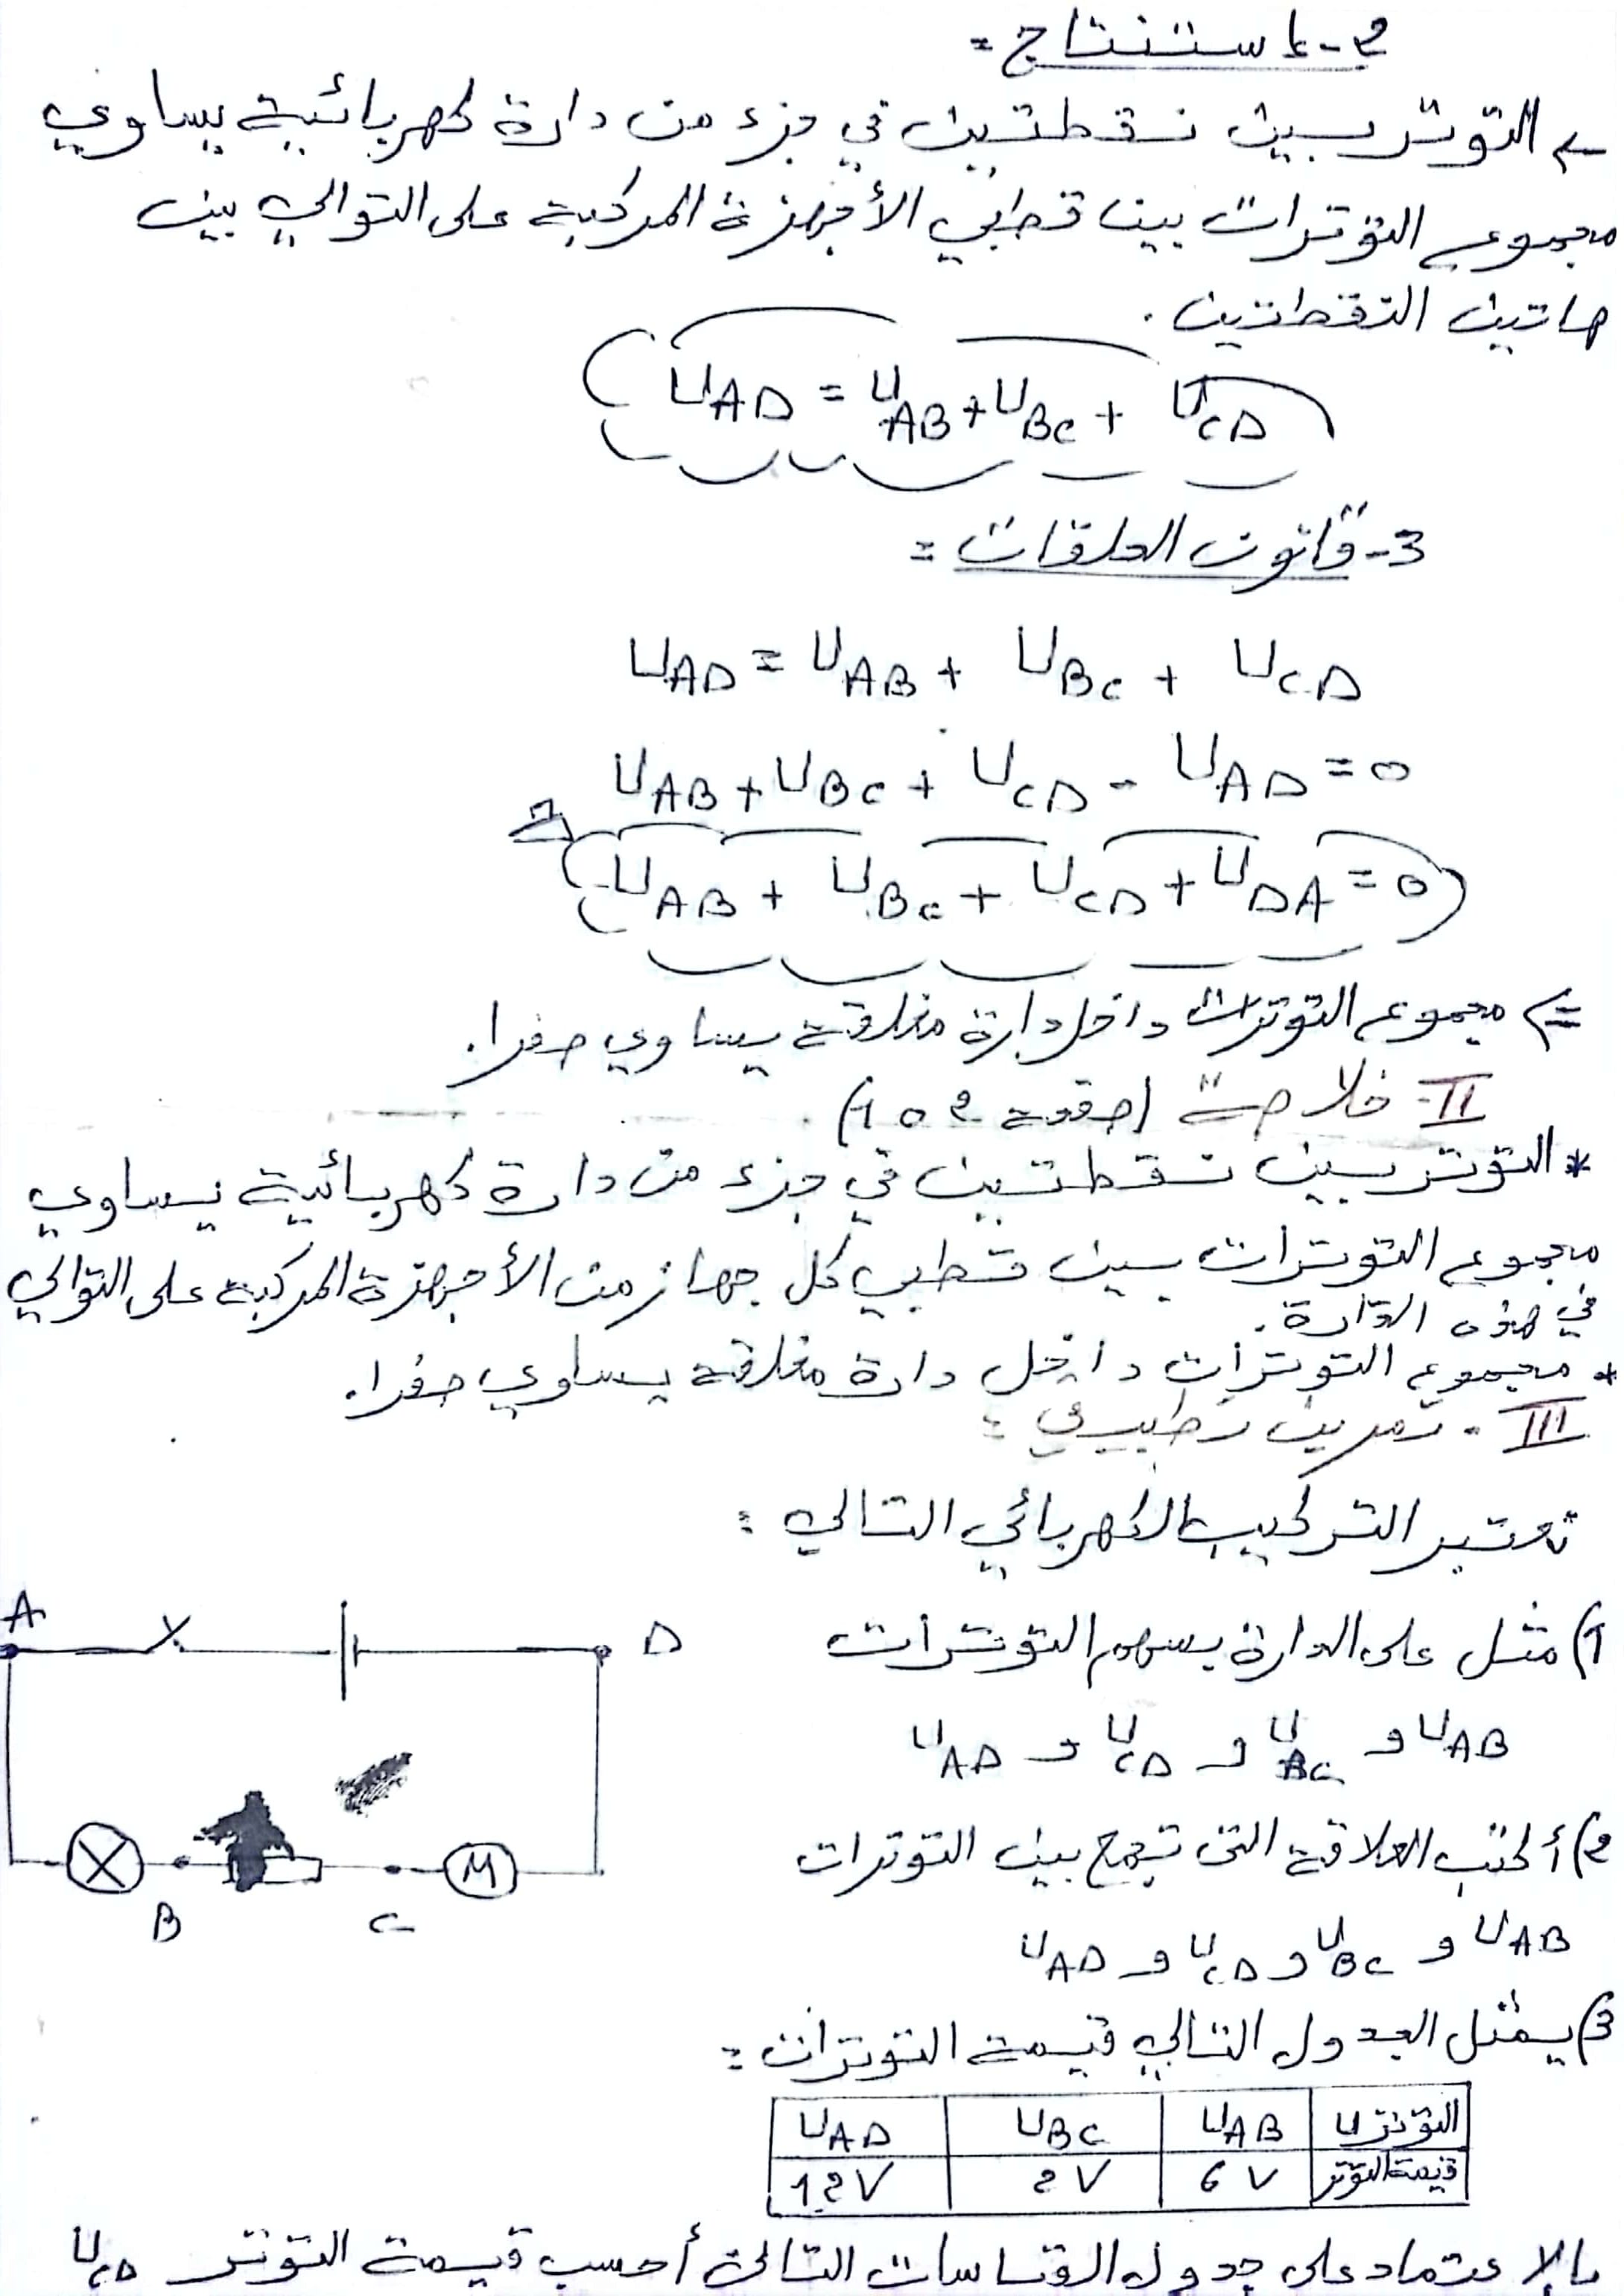 2- استنتاج =
<= التوتر بين نقطتين في جزء من دارة كهربائية يساوي
مجموع التوترات بين قطبي الأجهزة المركبة على التوالي بين
هاتين النقطتين.
U_AD = U_AB + U_BC + U_CD
3- قانون الحلقات =
U_AD = U_AB + U_BC + U_CD
U_AB + U_BC + U_CD - U_AD = 0
U_AB + U_BC + U_CD + U_DA = 0
<= مجموع التوترات داخل دارة مغلقة يساوي صفرا.
II- خلاصة (صفحة 102)
* التوتر بين نقطتين في جزء من دارة كهربائية يساوي
مجموع التوترات بين قطبي كل جهاز من الأجهزة المركبة على التوالي
في هذه الدارة.
* مجموع التوترات داخل دارة مغلقة يساوي صفرا.
III- تمرين تطبيقي :
نعتبر التركيب الكهربائي التالي :
A
D
M
B
C
1) مثل على الدارة بسهم التوترات
U_AB و U_BC و U_CD و U_AD
2) أكتب العلاقة التي تجمع بين التوترات
U_AB و U_BC و U_CD و U_AD
3) يمثل الجدول التالي قيمة التوترات :
التوتر U U_AB U_BC U_AD
قيمة التوتر 6 V 2 V 12 V
بالاعتماد على جدول القياسات التالي أحسب قيمة التوتر U_CD